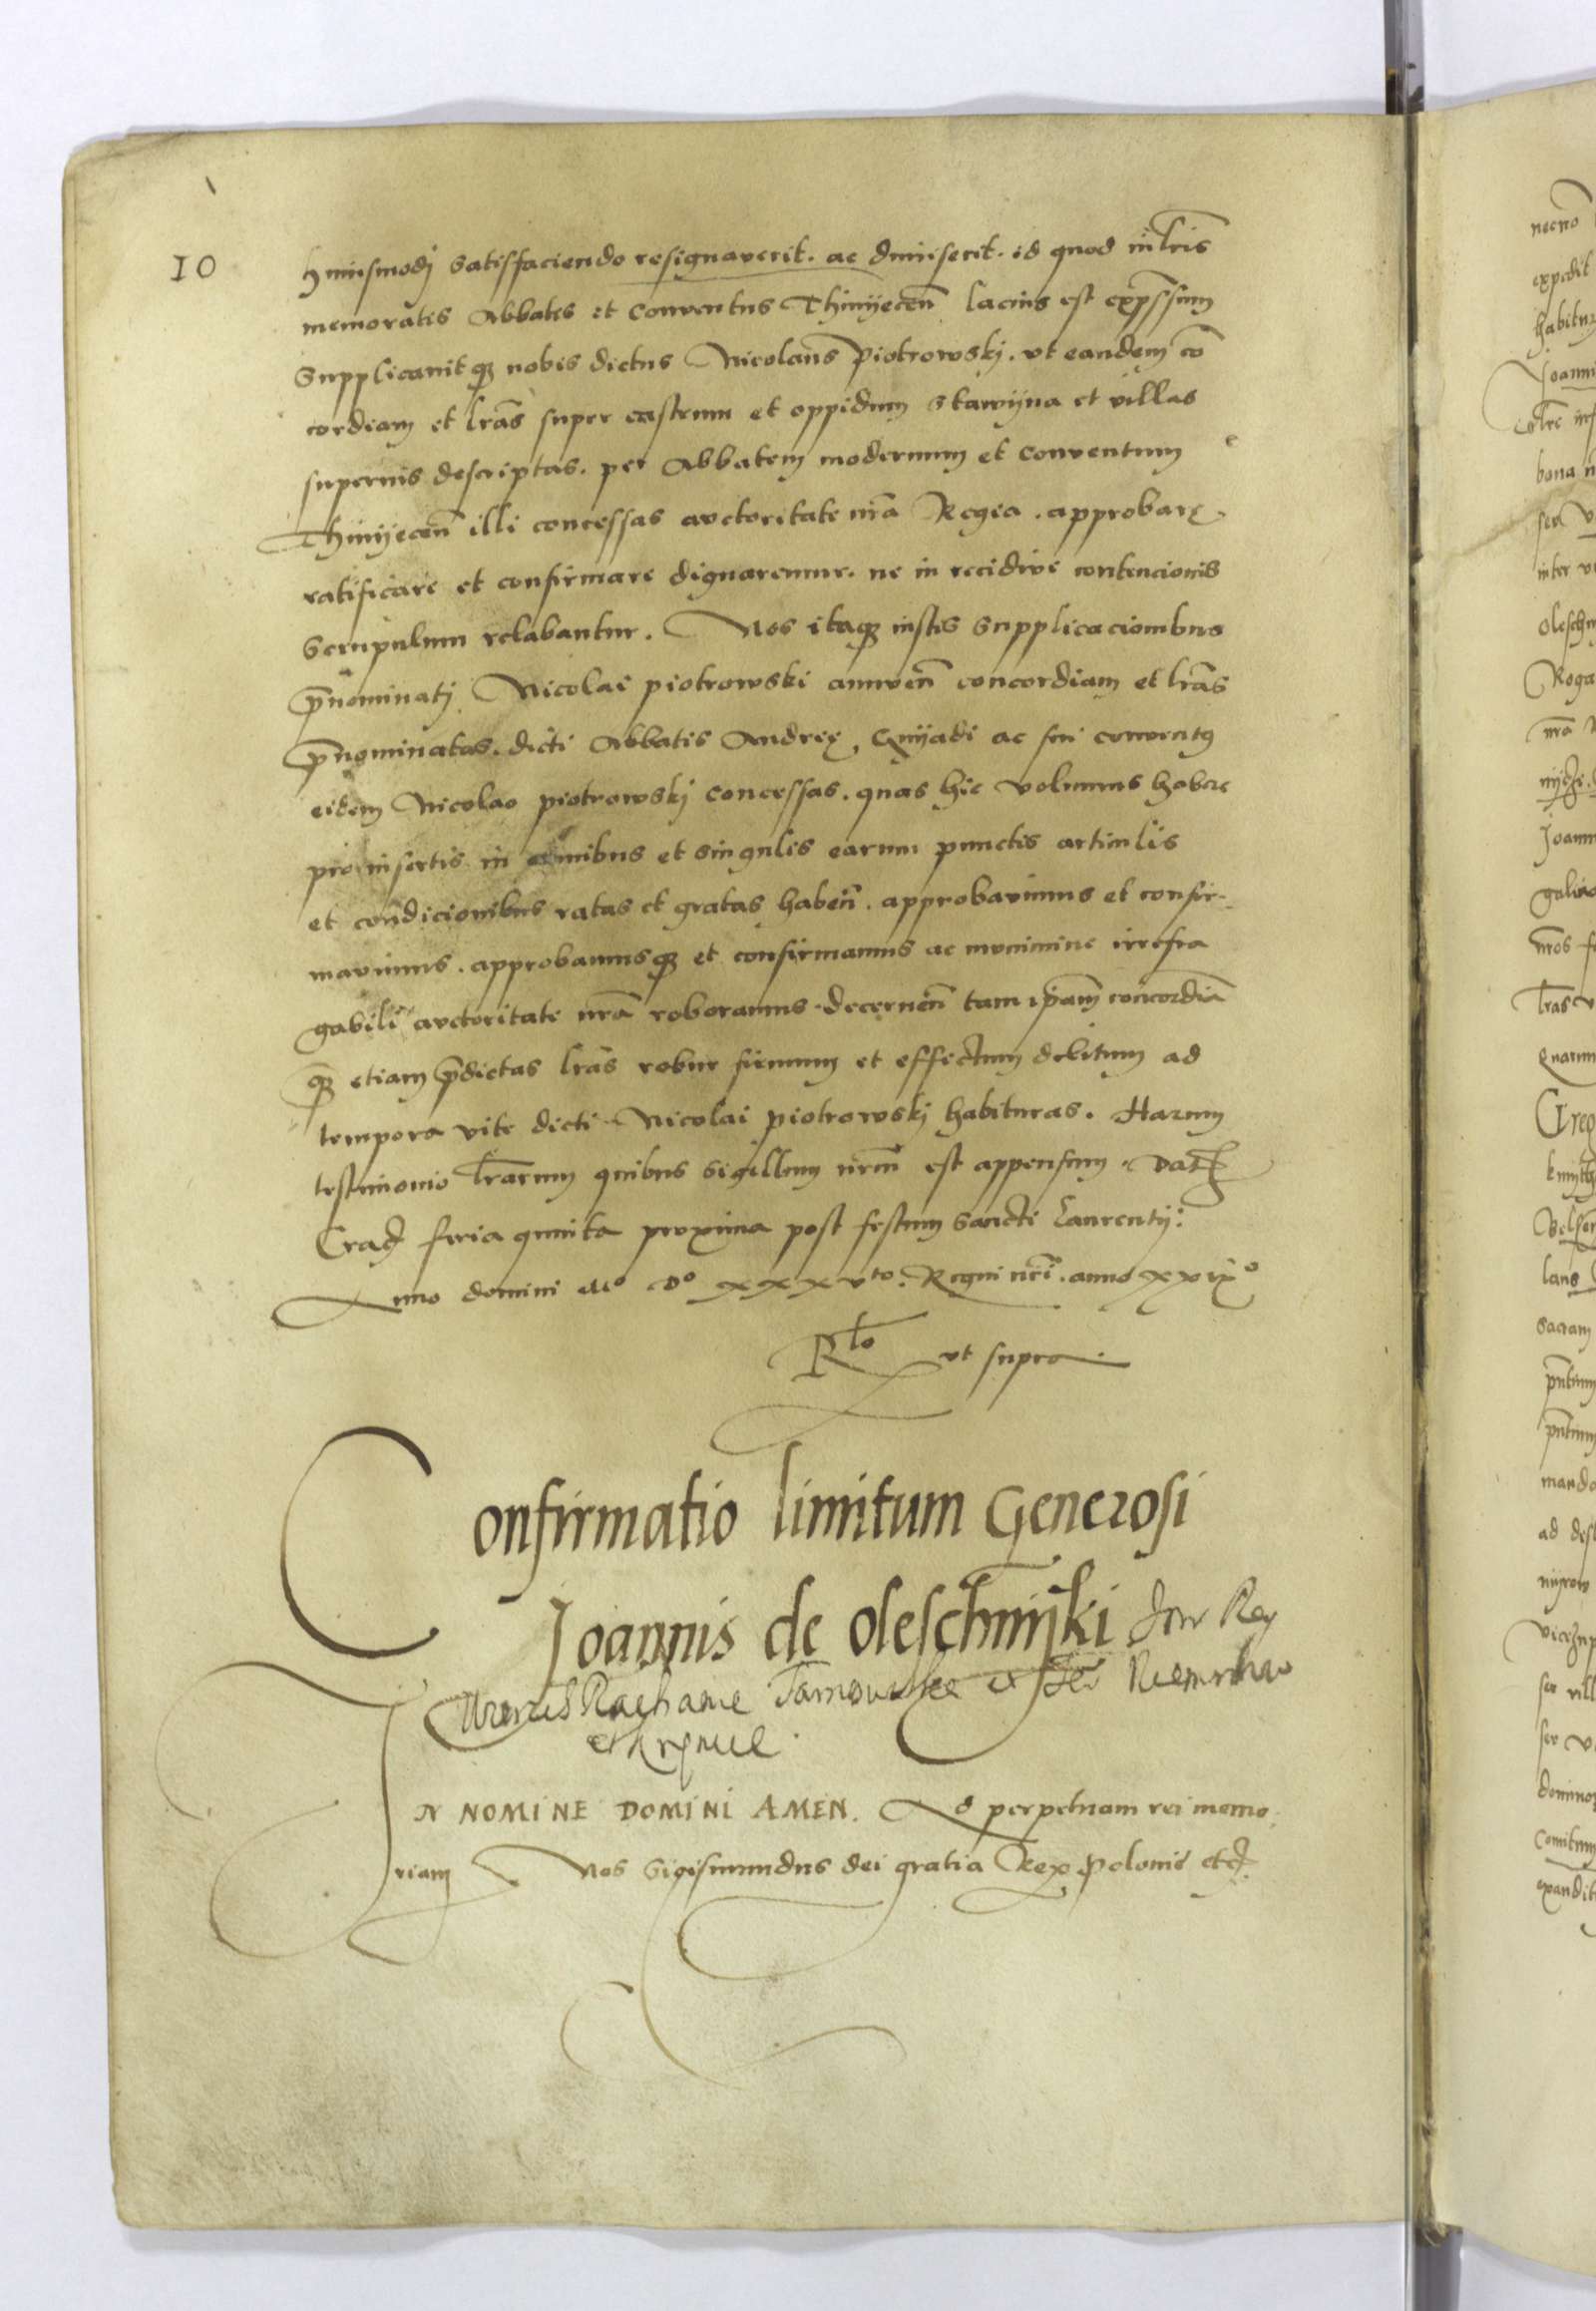 10
huiusmodj satisfaciendo resignaverit. ac dimiserit. id quod in lris
memoratis Abbatis et Conventus Thinyecen̄ lacius est exp̄ssum
Supplicauitqȝ nobis dictus Nicolaus Piotrowskj. vt eandem cō
cordiam et lrās super castrum et oppidum Skawyna et villas
supernis descriptas. per Abbatem modernum et Conventum
Thinyecen̄ illi concessas auctoritate nrā Regia. approbare.
ratificare et confirmare dignaremur. ne in recidive contencionis
scrupulum relabantur. Nos itaqȝ iustis supplicacionibus
p̄nominatj Nicolai piotrowski annuen̄ concordiam et lrās
p̄nominatas. dicti Abbatis Andreę, Gnyadi ac sui conventus
eidem Nicolao piotrowskj concessas. quas hic volumus habere
pro insertis in omnibus et singulis earum punctis articulis
et condicionibus ratas et gratas haben̄. approbavimus et confir-
mavimus. approbamusqȝ et confirmamus ac munimine irrefra
gabili auctoritate nrā roboramus. decernen̄ tam ip̄am concordiā
qȝ etiam p̄dictas lrās robur firmum et effectum debitum ad
tempora vite dicti Nicolai piotrowskj habituras. Harum
testimonio lrārum quibus sigillum nrm̄ est appensum. Dat̄
Crac̄ feria quinta proxima post festum sancti Laurentij:
Anno domini Mᵒ Dᵒ xxxvᵗᵒ. Regni nri. anno xxixᵒ
Rᵗᵒ vt supra.
Confirmatio limitum Generosi
Joannis de oleschnijki
Tarnowske
IN NOMINE DOMINI AMEN. Ad perpetuam rei memo
riam Nos Sigismundus dei gratia Rex Polonie etc̄.
necnō
expedit
habitur
Joanni
bona
inter
Joann
mando
Comitum